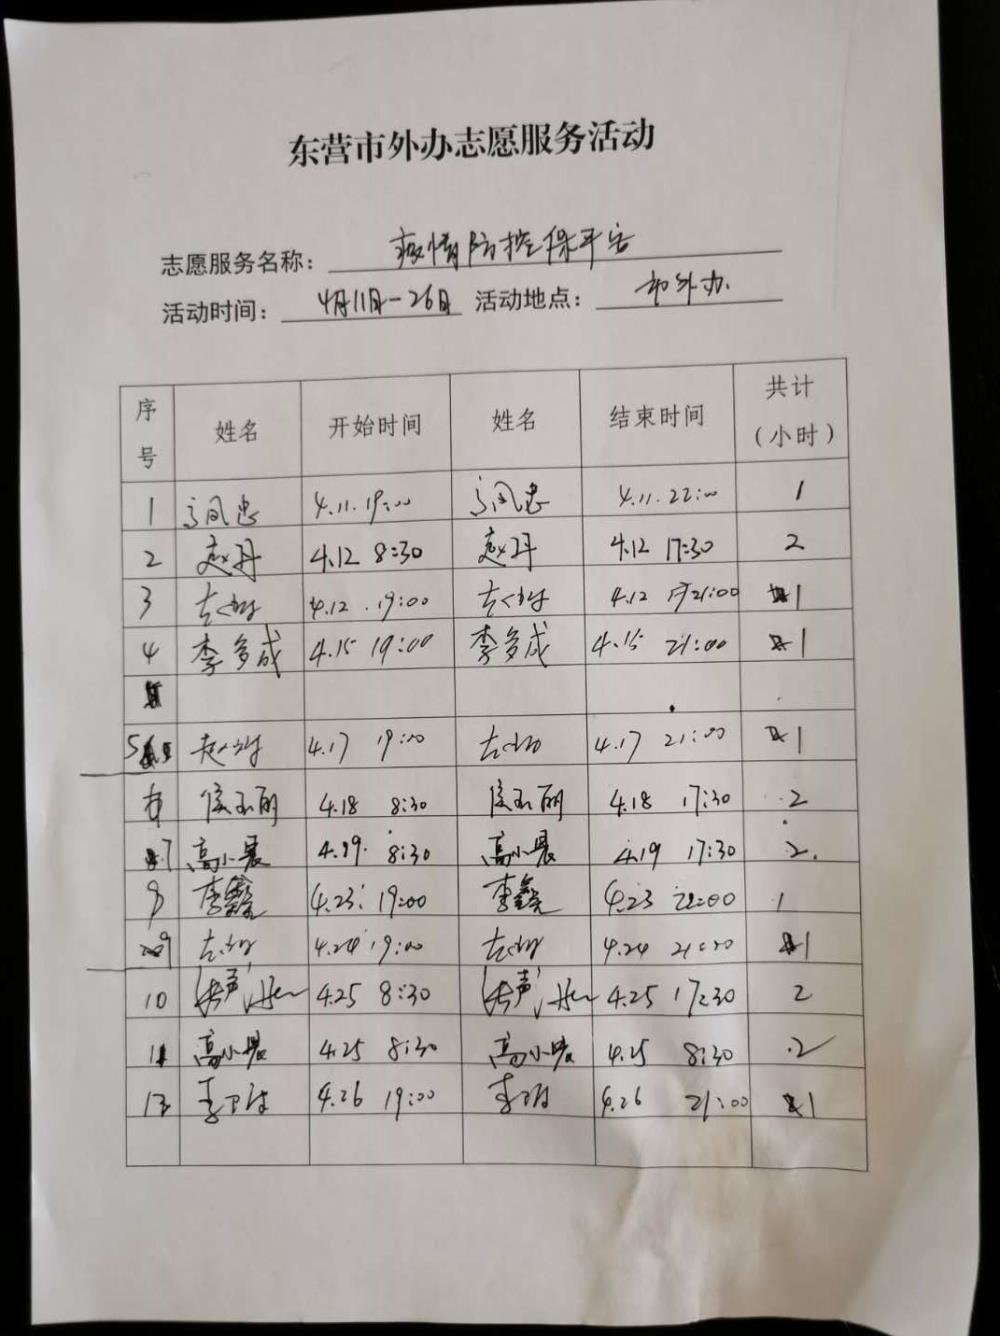 东营市外办志愿服务活动
志愿服务名称： 疫情防控保平安
活动时间： 4月11日-26日 活动地点： 市外办
序号 姓名 开始时间 姓名 结束时间 共计（小时）
1 4.11. 19:00 4.11. 22:00 1
2 赵丹 4.12 8:30 赵丹 4.12 17:30 2
3 4.12 . 19:00 4.12 21:00 1
4 李多成 4.15 19:00 李多成 4.15 21:00 1
5 4.17 19:00 4.17 21:00 1
侯玉丽 4.18 8:30 侯玉丽 4.18 17:30 2
7 高小晨 4.19. 8:30 高小晨 4.19 17:30 2.
8 李鑫 4.23: 19:00 李鑫 4.23 22:00 1
9 4.24 19:00 4.24 21:00 1
10 4.25 8:30 4.25 17:30 2
11 高小晨 4.25 8:30 高小晨 4.25 8:30 2
4.26 19:00 4.26 21:00 1